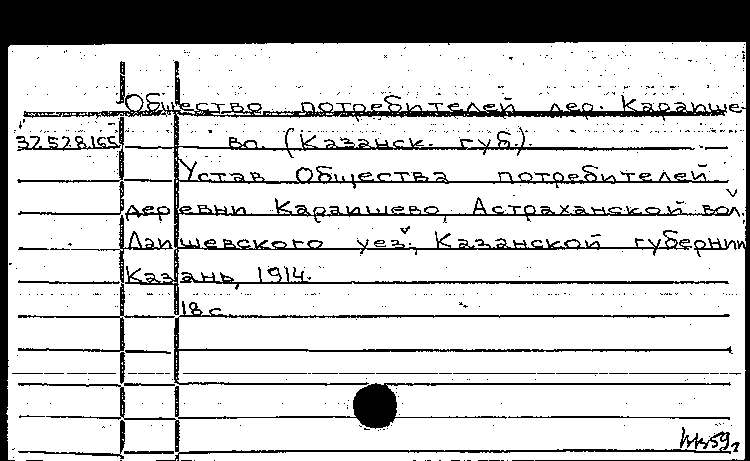 Общество потребителей дер. Карапше-
37.528.165 во. (Казанск. губ.)
Устав Общества потребителей
деревни Карапшево, Астраханской вол.
Лаишевского уез., Казанской губернии
Казань, 1914.
18 с